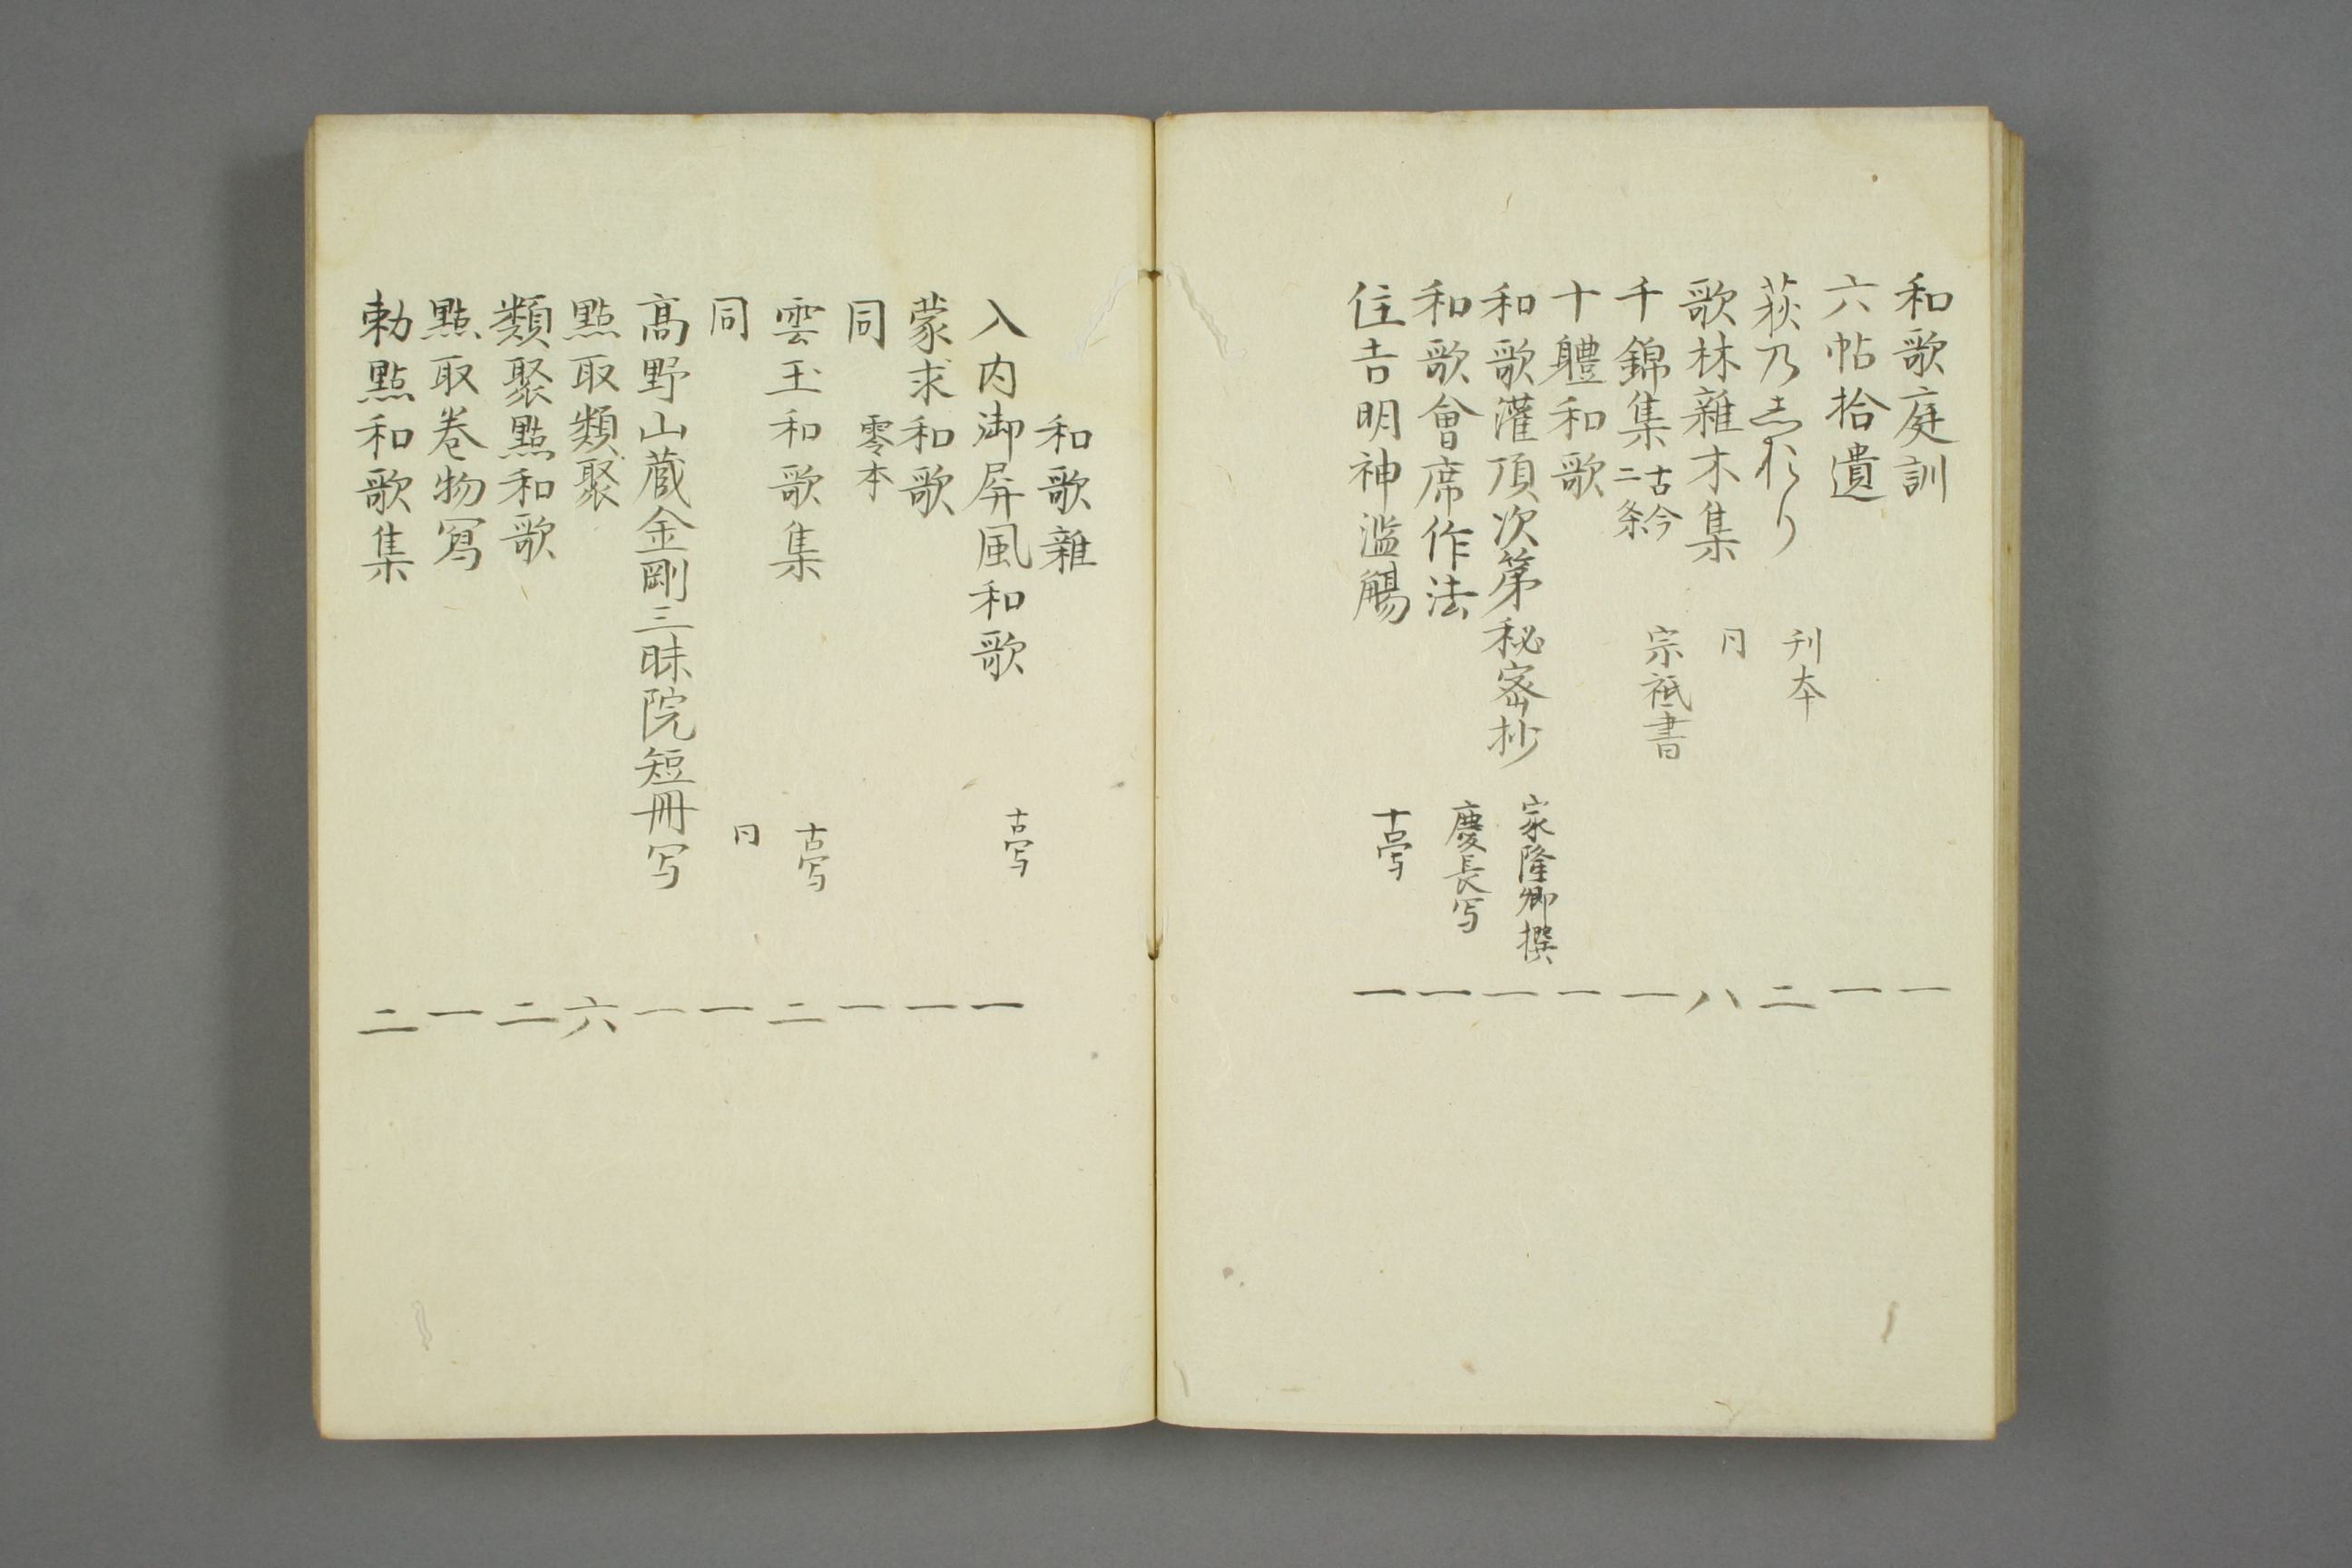 和歌庭訓 一
六帖拾遺 一
萩乃志折り 刊本 二
歌林雜木集 同 八
千錦集 古今二条 宗祇書 一
十軆和歌 一
和歌灌頂次第秘密抄 家隆卿撰 一
和歌會席作法 慶長写 一
住吉明神濫觴 古写 一
和歌雜
入内御屏風和歌 古写 一
蒙求和歌 一
同 零本 一
雲玉和歌集 古写 二
同 同 一
高野山蔵金剛三昧院短冊写 一
點取類聚 六
類聚點和歌 二
點取巻物寫 一
勅點和歌集 二